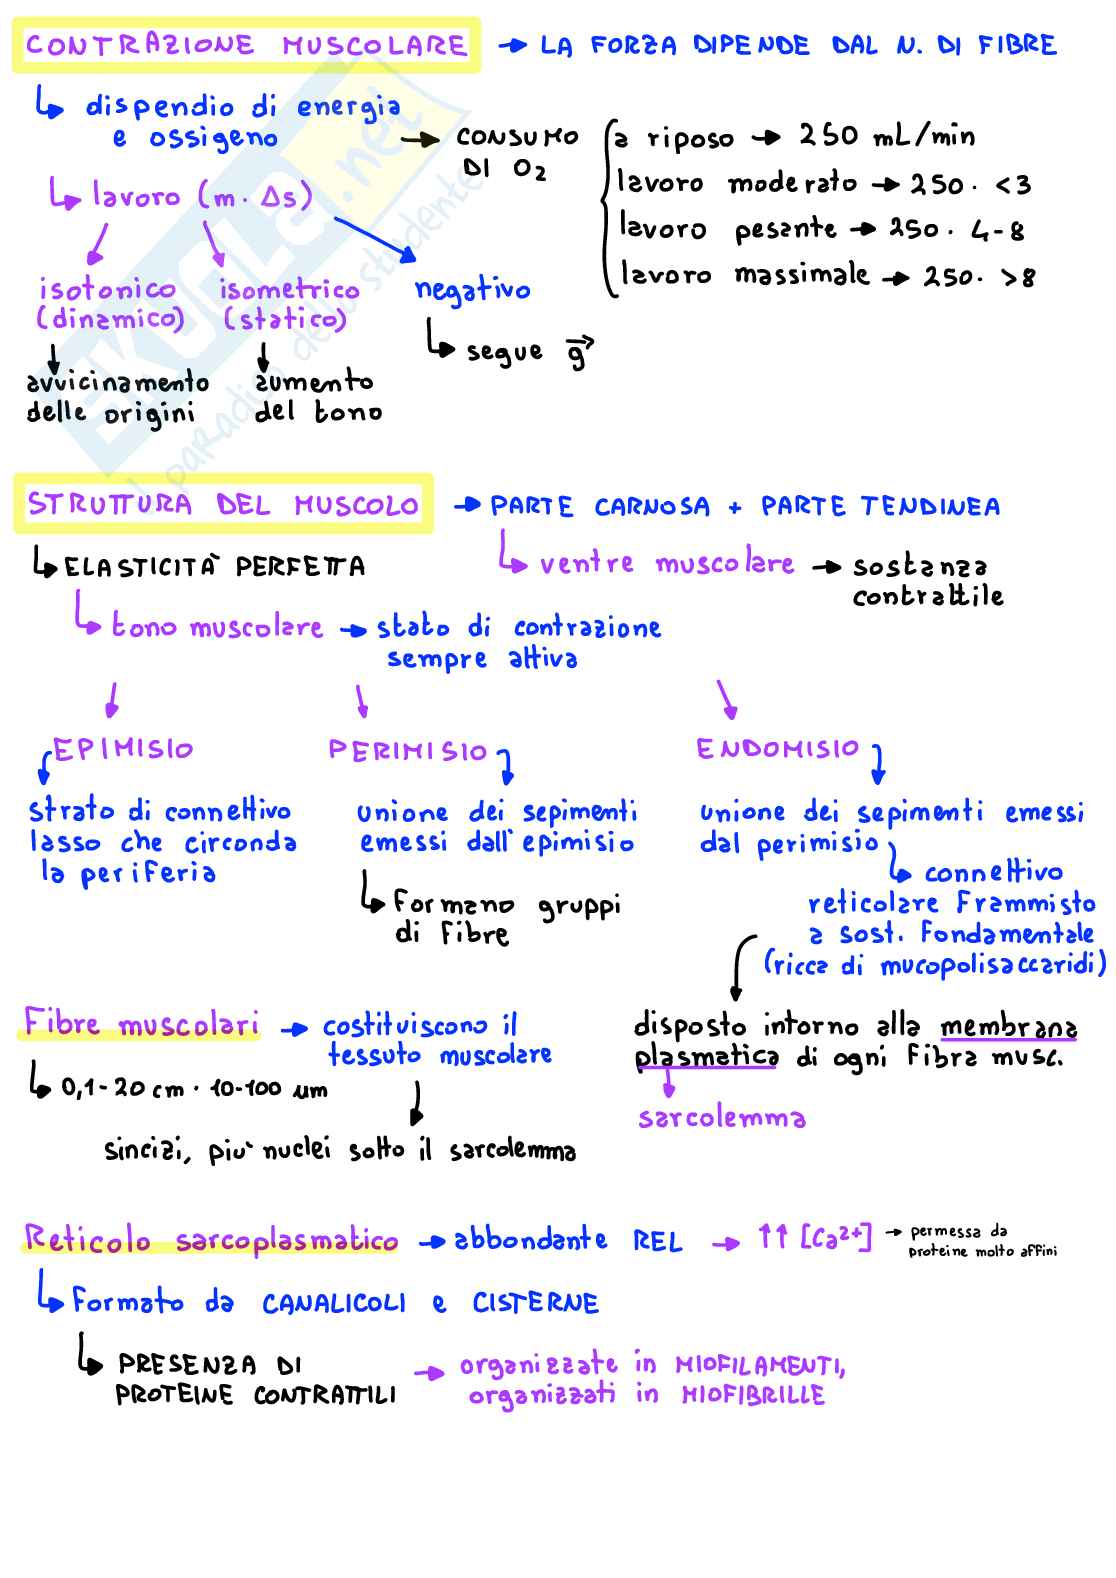 CONTRAZIONE MUSCOLARE → LA FORZA DIPENDE DAL N. DI FIBRE
↳ dispendio di energia
e ossigeno → CONSUMO
DI O₂
a riposo → 250 mL/min
lavoro moderato → 250 · <3
lavoro pesante → 250 · 4-8
lavoro massimale → 250 · >8
↳ lavoro (m · Δs)
isotonico
(dinamico)
isometrico
(statico)
negativo
↳ segue g⃗
avvicinamento
delle origini
aumento
del tono
SKUOLA.net
il paradiso dello studente
STRUTTURA DEL MUSCOLO → PARTE CARNOSA + PARTE TENDINEA
↳ ELASTICITÀ PERFETTA
↳ ventre muscolare → sostanza
contrattile
↳ tono muscolare → stato di contrazione
sempre attiva
EPIMISIO
strato di connettivo
lasso che circonda
la periferia
PERIMISIO
unione dei sepimenti
emessi dall'epimisio
↳ formano gruppi
di fibre
ENDOMISIO
unione dei sepimenti emessi
dal perimisio
↳ connettivo
reticolare frammisto
a sost. fondamentale
(ricca di mucopolisaccaridi)
disposto intorno alla membrana
plasmatica di ogni fibra musc.
sarcolemma
Fibre muscolari → costituiscono il
tessuto muscolare
↳ 0,1-20 cm · 10-100 μm
sincizi, più nuclei sotto il sarcolemma
Reticolo sarcoplasmatico → abbondante REL → ↑↑ [Ca²⁺] → permessa da
proteine molto affini
↳ formato da CANALICOLI e CISTERNE
↳ PRESENZA DI
PROTEINE CONTRATTILI → organizzate in MIOFILAMENTI,
organizzati in MIOFIBRILLE